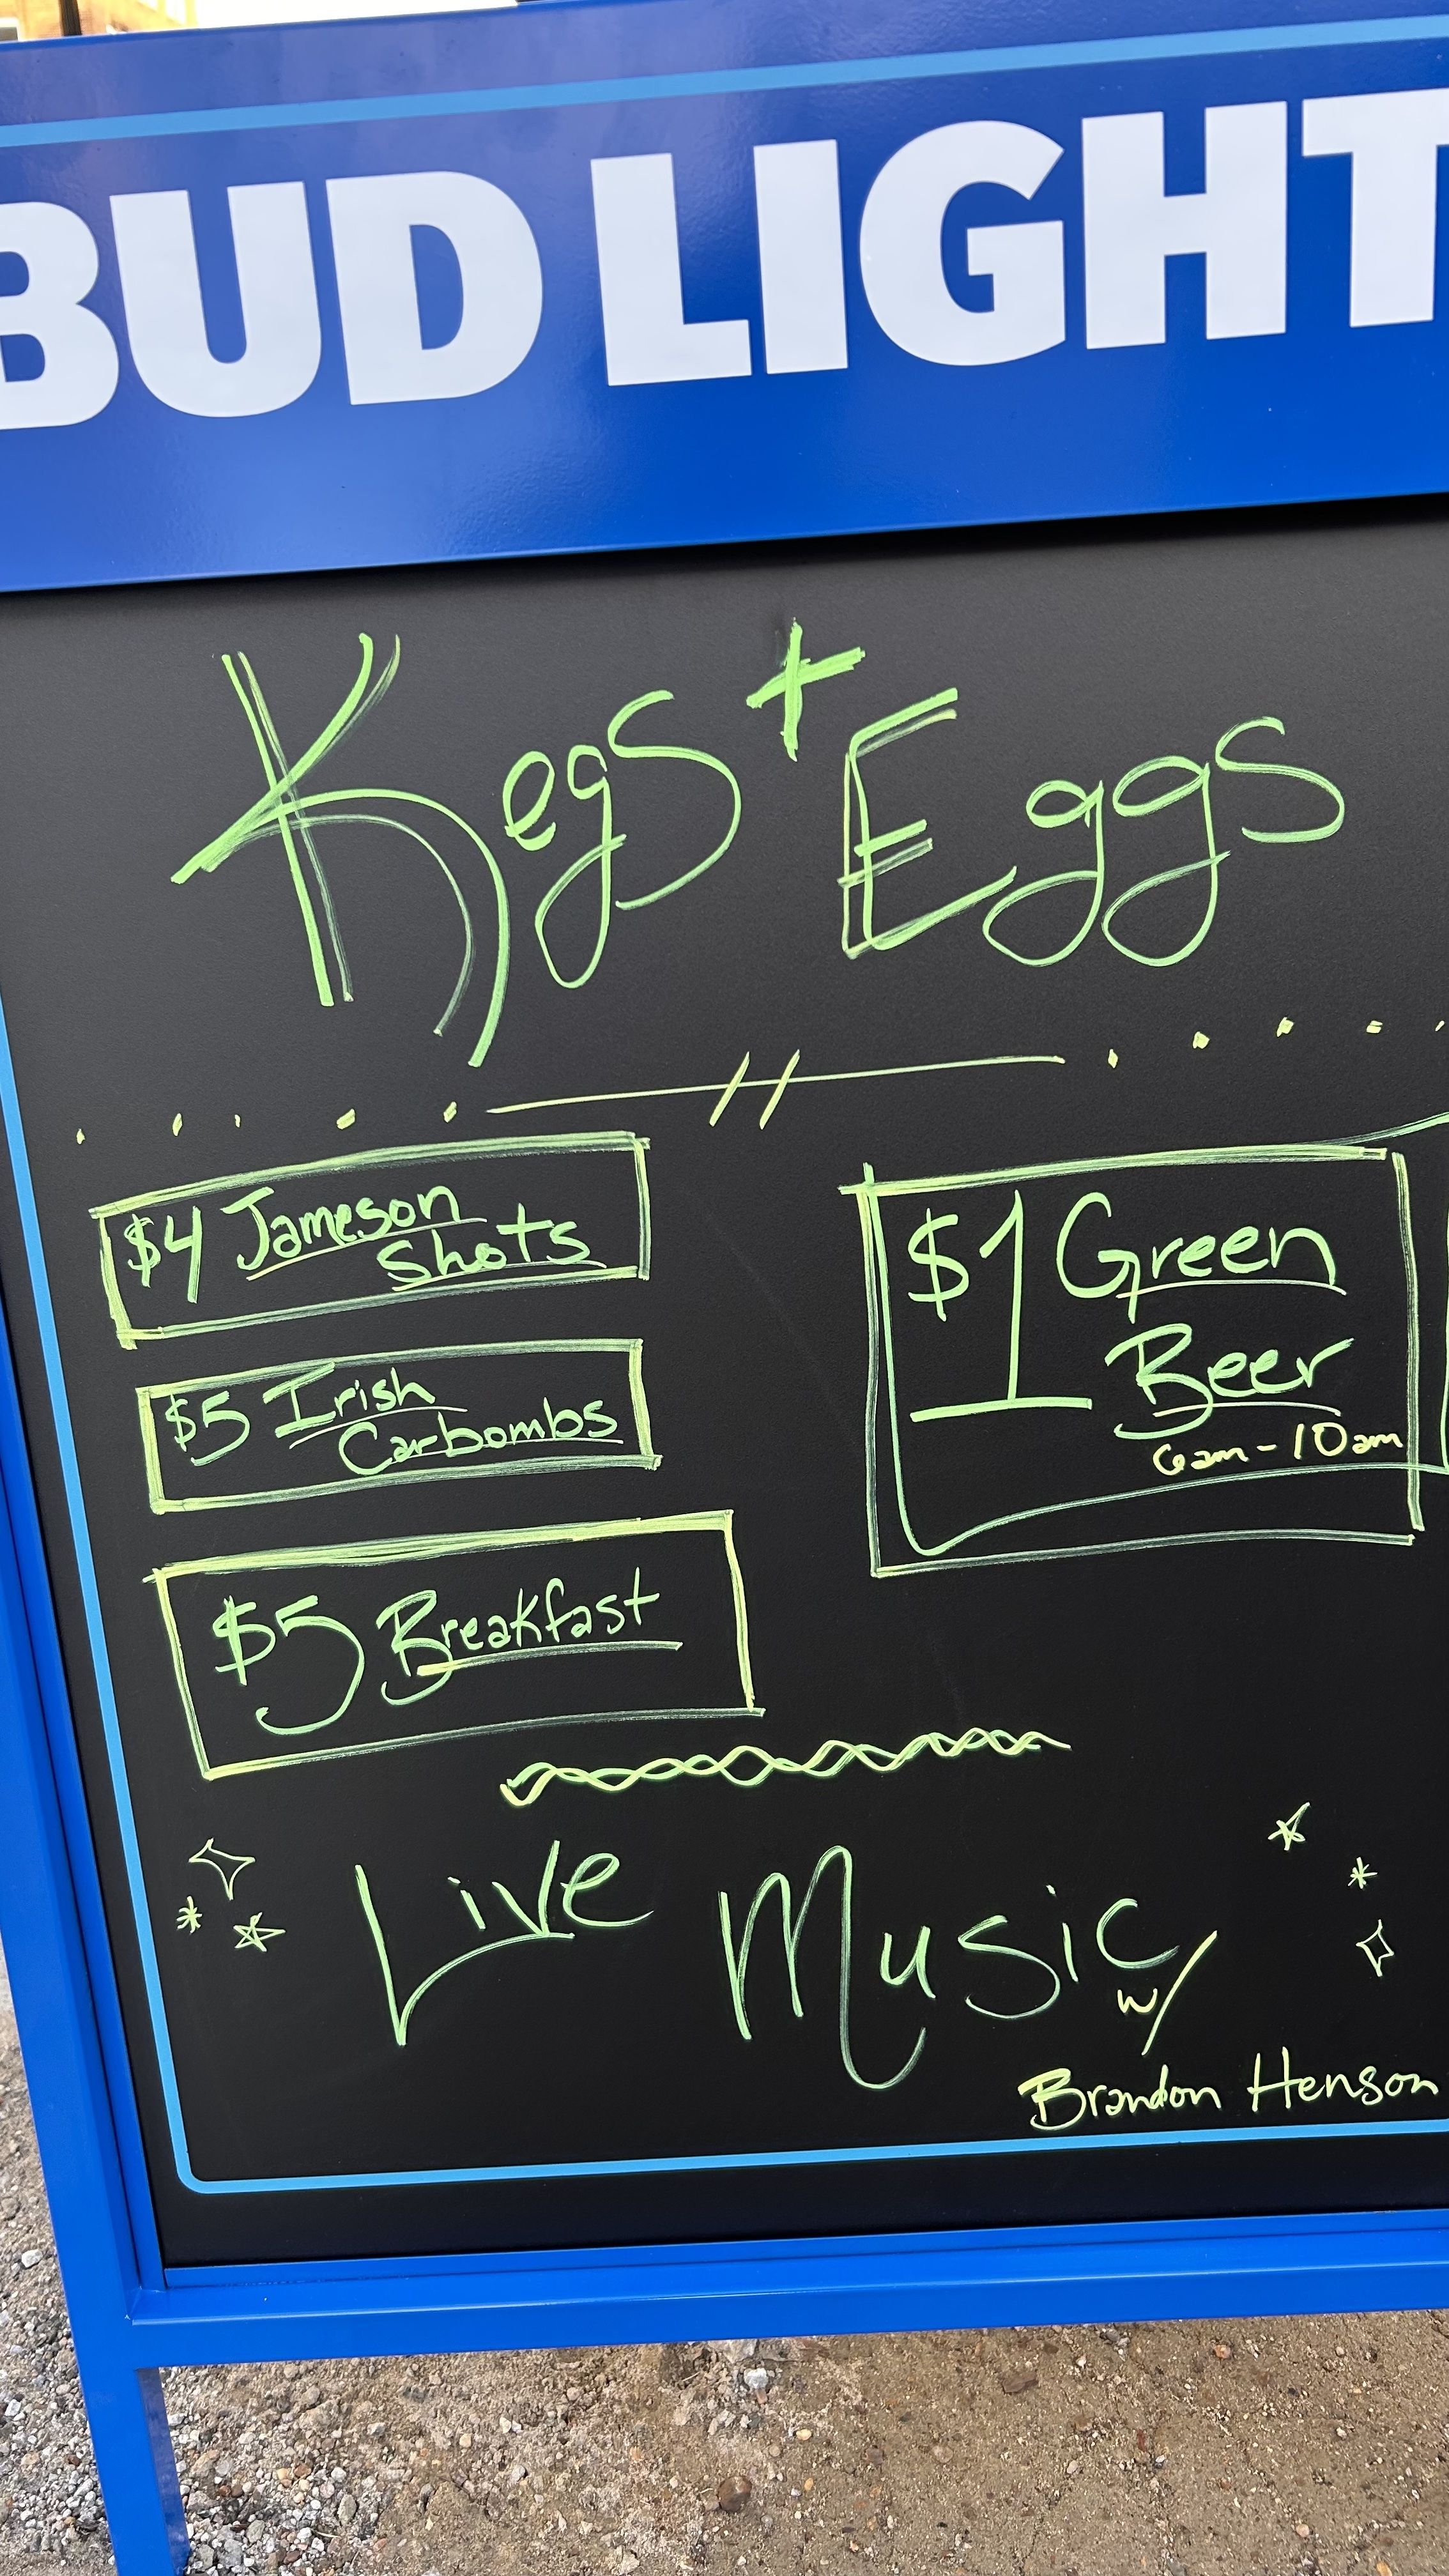 BUD LIGHT
Kegs + Eggs
$4 Jameson
Shots
$5 Irish
Carbombs
$5 Breakfast
$1 Green
Beer
6am - 10am
Live Music
w/
Brandon Henson